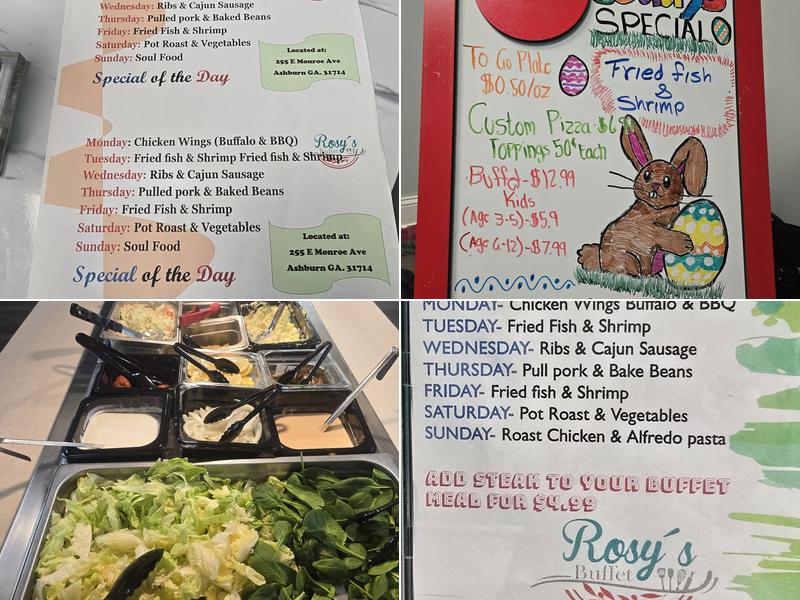 Wednesday: Ribs & Cajun Sausage
Thursday: Pulled pork & Baked Beans
Friday: Fried Fish & Shrimp
Saturday: Pot Roast & Vegetables
Sunday: Soul Food
Special of the Day
Located at:
255 E Monroe Ave
Ashburn GA. 31714
Monday: Chicken Wings (Buffalo & BBQ)
Tuesday: Fried fish & Shrimp Fried fish & Shrimp
Wednesday: Ribs & Cajun Sausage
Thursday: Pulled pork & Baked Beans
Friday: Fried Fish & Shrimp
Saturday: Pot Roast & Vegetables
Sunday: Soul Food
Special of the Day
Rosy's
Buffet
Located at:
255 E Monroe Ave
Ashburn GA. 31714
SPECIAL
To Go Plate
$0.50/oz
Fried fish
&
Shrimp
Custom Pizza-$6
Toppings 50¢ Each
Buffet-$12.99
Kids
(Age 3-5)-$5.9
(Age 6-12)-$7.99
MONDAY- Chicken Wings Buffalo & BBQ
TUESDAY- Fried Fish & Shrimp
WEDNESDAY- Ribs & Cajun Sausage
THURSDAY- Pull pork & Bake Beans
FRIDAY- Fried fish & Shrimp
SATURDAY- Pot Roast & Vegetables
SUNDAY- Roast Chicken & Alfredo pasta
ADD STEAK TO YOUR BUFFET
MEAL FOR $4.99
Rosy's
Buffet